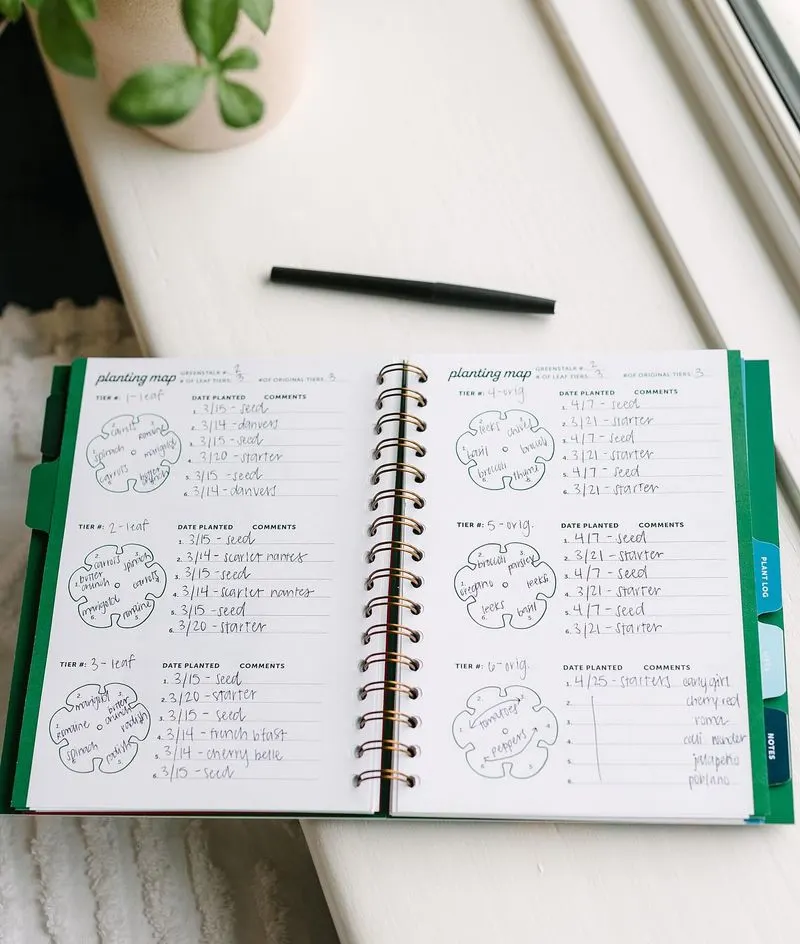 planting map GREENSTALK #: 2
# OF LEAF TIERS: 3 # OF ORIGINAL TIERS: 3
TIER #: 1-leaf DATE PLANTED COMMENTS
carrot romaine
spinach marigold
carrots butter crunch
1. 3/15 - seed
2. 3/14 - danvers
3. 3/15 - seed
4. 3/20 - starter
5. 3/15 - seed
6. 3/14 - danvers
TIER #: 2-leaf DATE PLANTED COMMENTS
carrots spinach
butter crunch carrots
marigold romaine
1. 3/15 - seed
2. 3/14 - scarlet nantes
3. 3/15 - seed
4. 3/14 - scarlet nantes
5. 3/15 - seed
6. 3/20 - starter
TIER #: 3-leaf DATE PLANTED COMMENTS
marigold butter crunch
romaine radish
spinach radish
1. 3/15 - seed
2. 3/20 - starter
3. 3/15 - seed
4. 3/14 - french bfast
5. 3/14 - cherry belle
6. 3/15 - seed
planting map GREENSTALK #: 2
# OF LEAF TIERS: 3 # OF ORIGINAL TIERS: 3
TIER #: 4-orig DATE PLANTED COMMENTS
leeks chives
basil broccoli
broccoli thyme
1. 4/7 - seed
2. 3/21 - starter
3. 4/7 - seed
4. 3/21 - starter
5. 4/7 - seed
6. 3/21 - starter
TIER #: 5-orig. DATE PLANTED COMMENTS
broccoli parsley
oregano leeks
leeks basil
1. 4/7 - seed
2. 3/21 - starter
3. 4/7 - seed
4. 3/21 - starter
5. 4/7 - seed
6. 3/21 - starter
TIER #: 6-orig. DATE PLANTED COMMENTS
tomatoes
peppers
1. 4/25 - starters early girl
2. cherry red
3. roma
4. cali wonder
5. jalapeño
6. poblano
PLANT LOG
NOTES